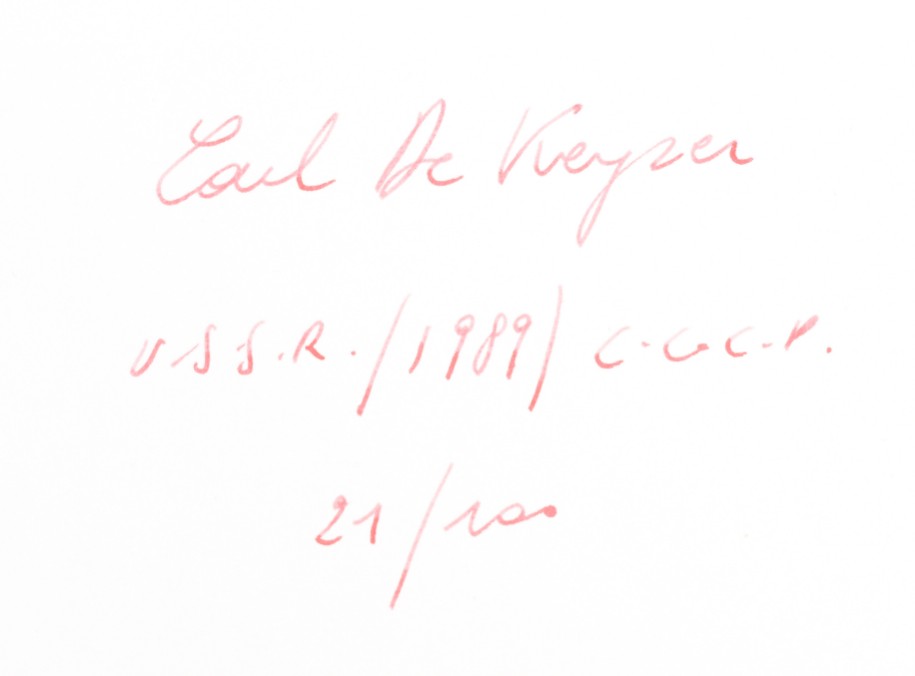 Carl De Keyzer
U.S.S.R./1989/C.C.C.P.
21/100